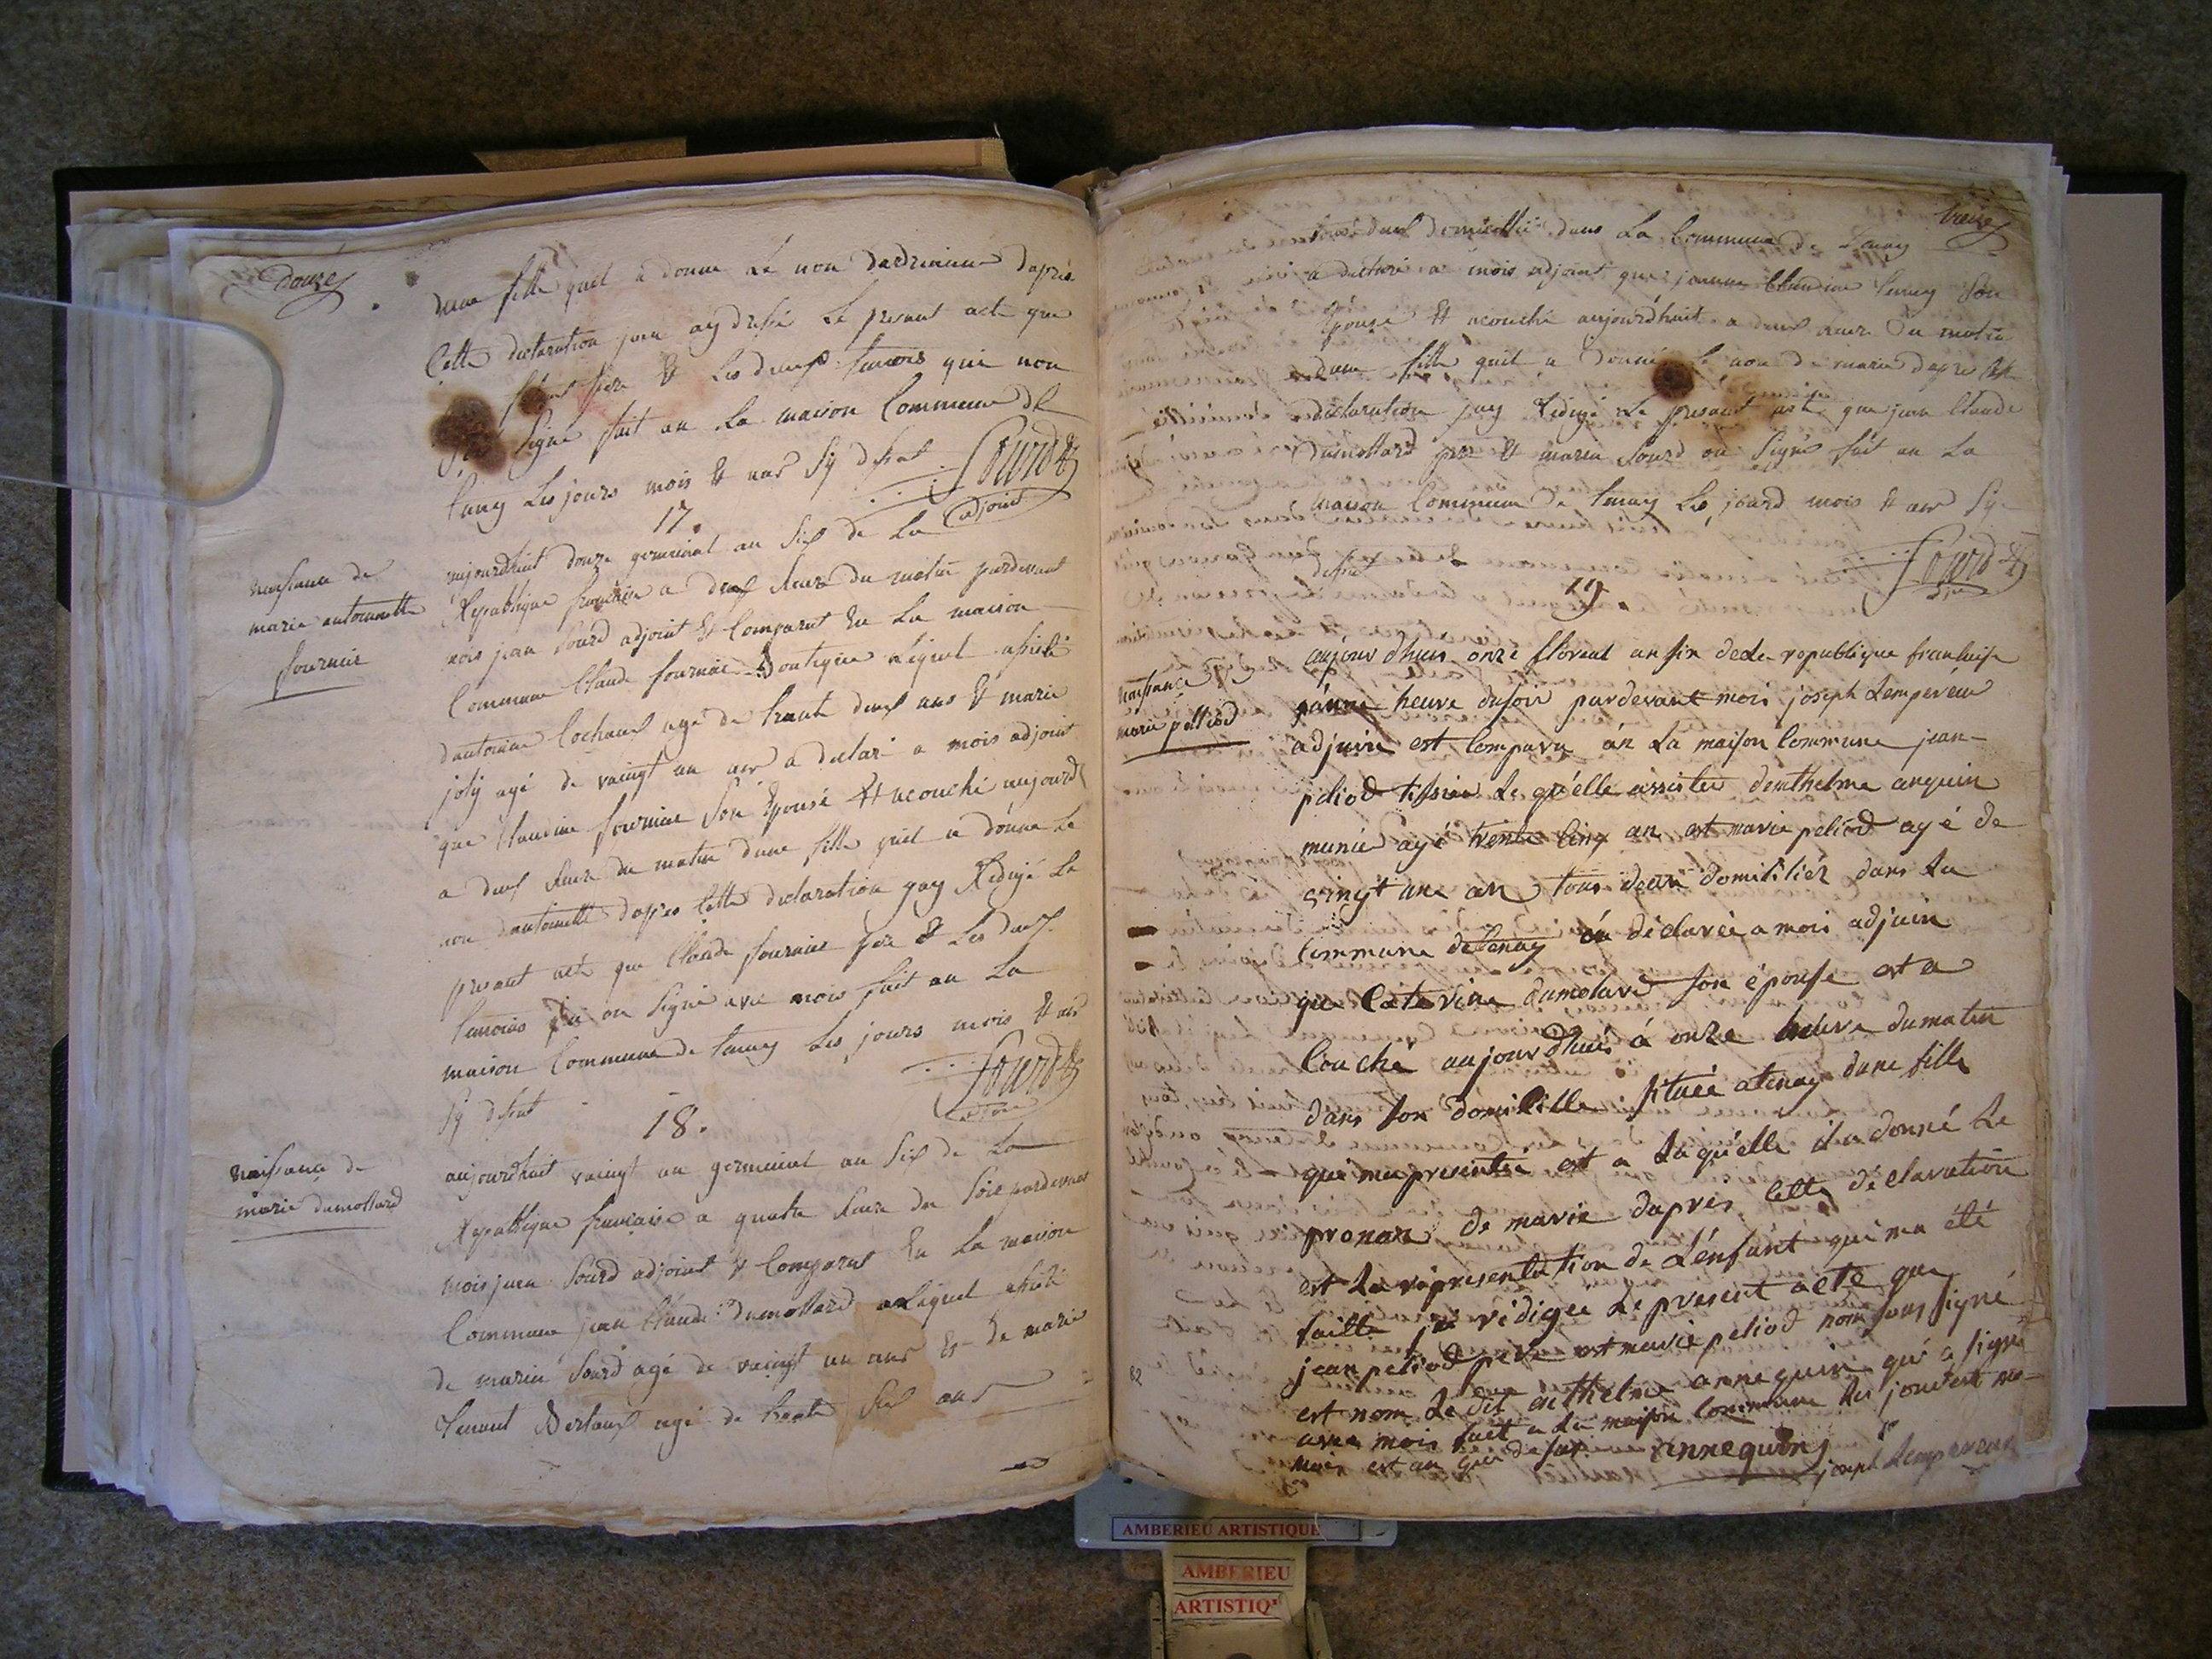 douze
dune fille quil a donné le non dadrienne dapres
cette declaration jean ay dressé le presant acte que
pere & les deux temoins qui non
signe fait an la maison commune de
tenay les jours mois & ans sy desus
Sourd
adjoint
17.
naissance de
marie antoinette
fournier
aujourdhuit douze germinal an six de la
Republique française a deux heure du matin pardevant
mois jean sourd adjoint & comparut en la maison
commune Claude fournier lequel assisté
dantoine cochaux agé de trante deux ans & marie
joly agé de vaingt un ans a declaré a mois adjoint
que Claudine fournier son épouse & acouché aujourd
a deux heure du matin dune fille quil a donne le
non dantoinette dapres cette declaration jay Redigé le
presant acte que Claude fournier pere & les deux
temoins on signé avec mois fait an la
maison commune de tenay les jours mois & ans
sy desut
Sourd
adjoint
18.
naissance de
marie dumollard
aujourdhuit vaingt un germinal an six de la
Republique française a quatre heure du soir pardevant
mois jean sourd adjoint & comparut en la maison
commune jean Claude dumollard lequel assisté
de maria sourd agé de vaingt un ans & de marie
agé de trante six ans
treize
deux domicillié dans la commune de Tenay
a declaré a mois adjoint que jeanne Claudine tenay son
épouse & acouché aujourdhuit a deux heure du matin
dune fille quil a donné le non de marie dapres cette
declaration jay Redigé le presant acte que jean Claude
dumollard pere & maria sourd on signé fait an la
maison commune de tenay les jourd mois & ans sy
desut
Sourd
19.
naissance
marie peliod
aujour dhuis onze floreal an six dede republique franlaise
heure du soir pardevant mois joseph Lempereur
adjuin est comparu án la maison commune jean
peliod tissier le quélle assistee denthelme anquin
munier agé trente cinq an est marie peliod agé de
vingt une an tous deux domililiér dans la
commune detenay on déclareé a mois adjuin
que Caterine dumolard son épouse est a
Couché aujourdhuis á onze heure du matin
dans son domilille situeé atenay dune fille
qui ma presentée est a laquélle il a donné le
pronon de marie dapres cette declaration
est la representation de Lénfant qui ma été
faitte je rédigée le present acte que
jean peliod pere est marie peliod nom sous signé
est nom le dit énthelme annequin qui a signé
avec mois fait a la maison commune les jourd est mo-
mois est an que desus annequin
joseph Lempereur
AMBERIEU ARTISTIQUE
AMBERIEU
ARTISTIQ'